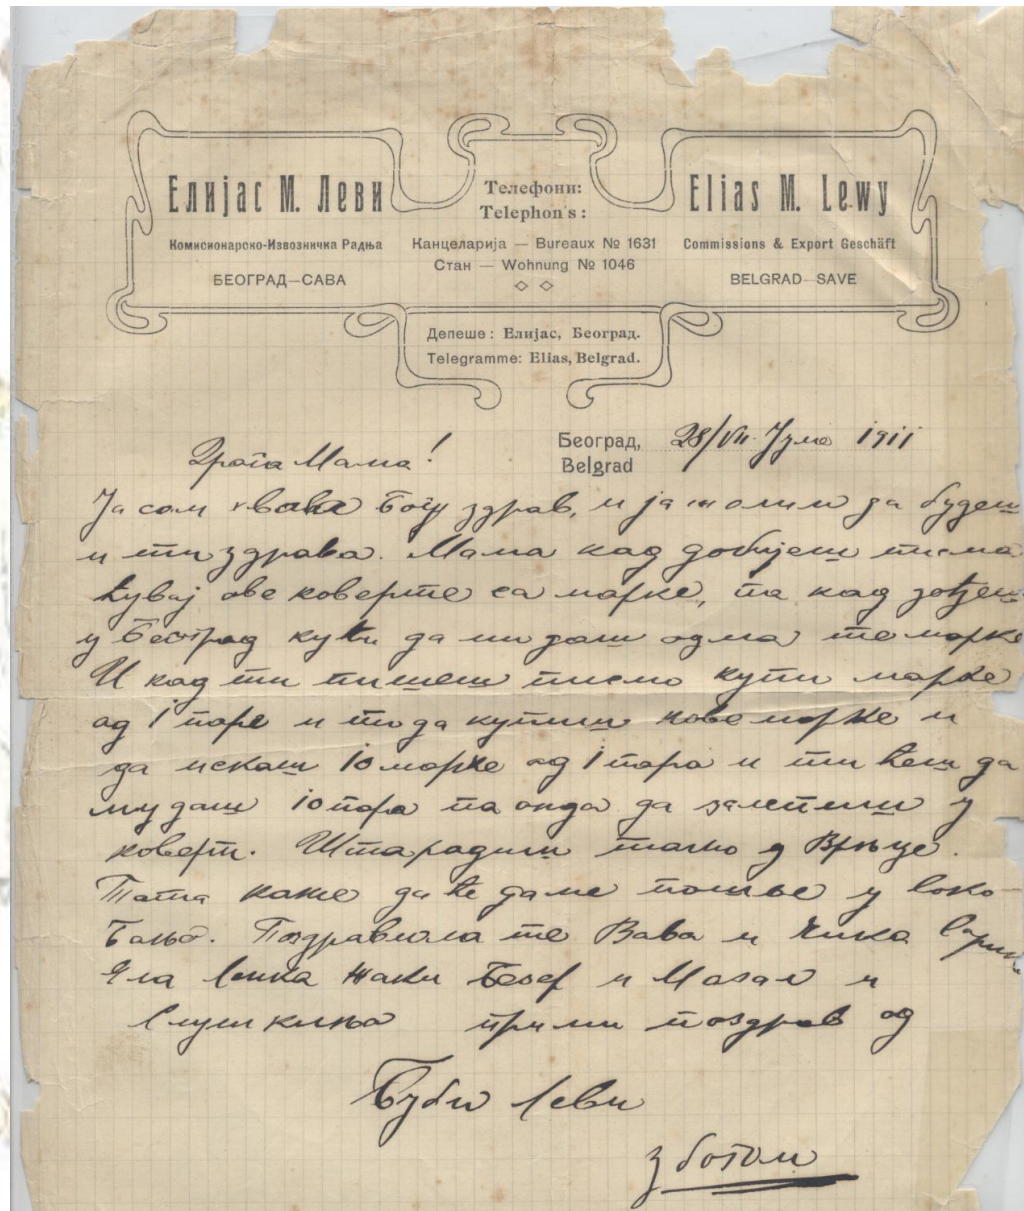 Елијас М. Леви
Комисионарско-Извозничка Радња
БЕОГРАД—САВА
Телефони:
Telephon's:
Канцеларија — Bureaux № 1631
Стан — Wohnung № 1046
Elias M. Lewy
Commissions & Export Geschäft
BELGRAD—SAVE
Депеше: Елијас, Београд.
Telegramme: Elias, Belgrad.
Београд, 28/VII. Јули 1911
Belgrad
Драга Мама!
Ја сам хвала Богу здрав, и ја молим да будеш
и ти здрава. Мама кад добијеш писма
чувај ове коверте са марке, па кад дођеш
у Београд кући да ми даш одма те марке
И кад ти пишеш писмо купи марке
од 1 паре и то да купиш нове марке и
да искаш 10 марке од 1 пара и ти ћеш да
му даш 10 пара па онда да залепиш у
коверт. Шта радиш тамо у Врњце.
Тата каже да ће да ме пошље у Соко
Бању. Поздравила те Вава и Чика
Жаки и
Слушкиња прими поздрав од
Буби Леви
з богом